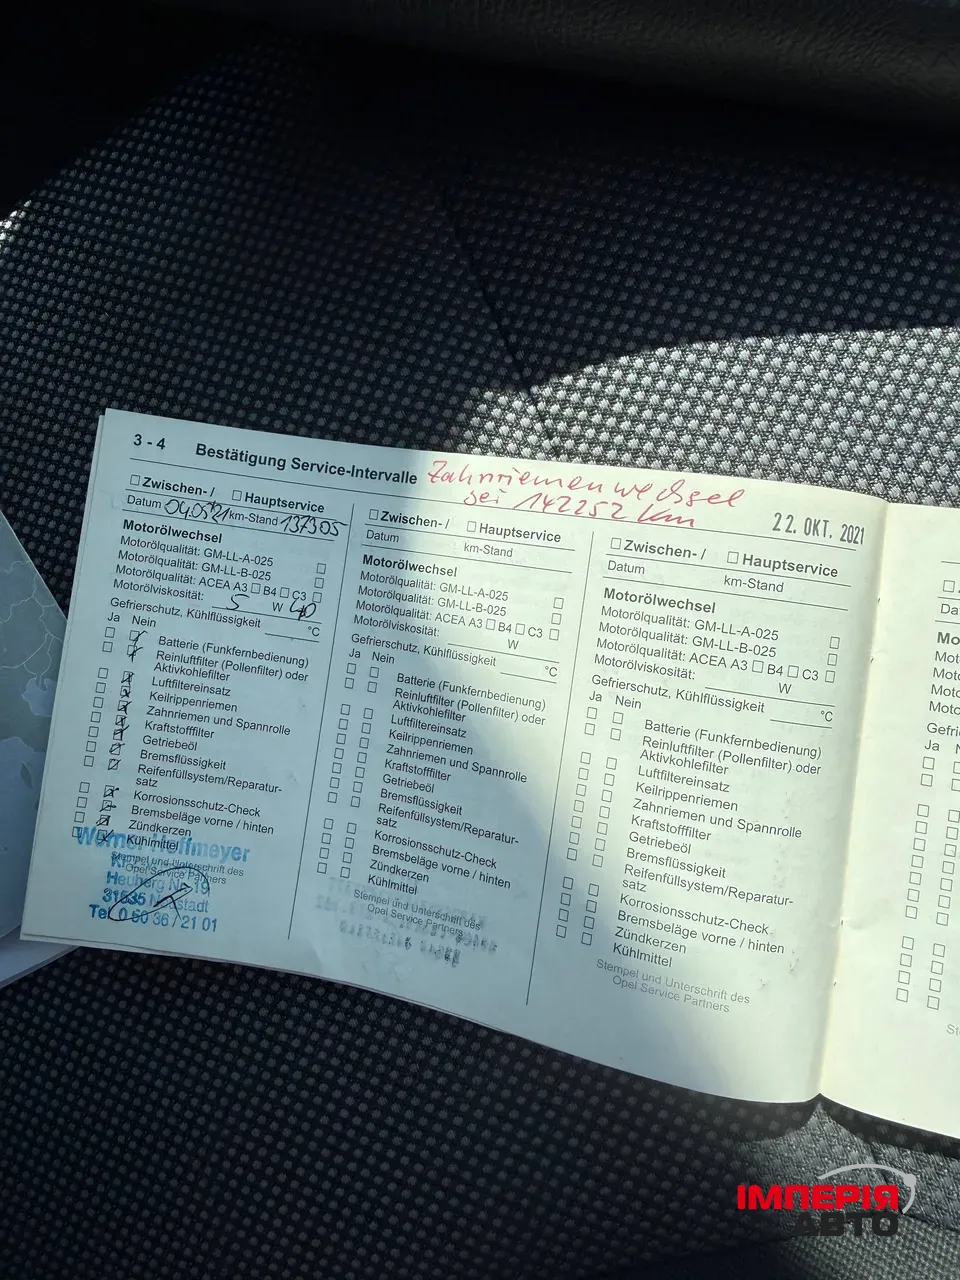 3 - 4 Bestätigung Service-Intervalle Zahnriemenwechsel
bei 142252 km
22. OKT. 2021
Zwischen- / Hauptservice
Datum 04.05.21 km-Stand 137305
Motorölwechsel
Motorölqualität: GM-LL-A-025
Motorölqualität: GM-LL-B-025
Motorölqualität: ACEA A3 B4 C3
Motorölviskosität: 5 W 40
Gefrierschutz, Kühlflüssigkeit °C
Ja Nein
Batterie (Funkfernbedienung)
Reinluftfilter (Pollenfilter) oder
Aktivkohlefilter
Luftfiltereinsatz
Keilrippenriemen
Zahnriemen und Spannrolle
Kraftstofffilter
Getriebeöl
Bremsflüssigkeit
Reifenfüllsystem/Reparatur-
satz
Korrosionsschutz-Check
Bremsbeläge vorne / hinten
Zündkerzen
Kühlmittel
Werner Hoffmeyer
Stempel und Unterschrift des
Opel Service Partners
Heuberg Nr. 19
31535 Neustadt
Tel. 0 50 36 / 21 01
Zwischen- / Hauptservice
Datum km-Stand
Motorölwechsel
Motorölqualität: GM-LL-A-025
Motorölqualität: GM-LL-B-025
Motorölqualität: ACEA A3 B4 C3
Motorölviskosität: W
Gefrierschutz, Kühlflüssigkeit °C
Ja Nein
Batterie (Funkfernbedienung)
Reinluftfilter (Pollenfilter) oder
Aktivkohlefilter
Luftfiltereinsatz
Keilrippenriemen
Zahnriemen und Spannrolle
Kraftstofffilter
Getriebeöl
Bremsflüssigkeit
Reifenfüllsystem/Reparatur-
satz
Korrosionsschutz-Check
Bremsbeläge vorne / hinten
Zündkerzen
Kühlmittel
Stempel und Unterschrift des
Opel Service Partners
Zwischen- / Hauptservice
Datum km-Stand
Motorölwechsel
Motorölqualität: GM-LL-A-025
Motorölqualität: GM-LL-B-025
Motorölqualität: ACEA A3 B4 C3
Motorölviskosität: W
Gefrierschutz, Kühlflüssigkeit °C
Ja Nein
Batterie (Funkfernbedienung)
Reinluftfilter (Pollenfilter) oder
Aktivkohlefilter
Luftfiltereinsatz
Keilrippenriemen
Zahnriemen und Spannrolle
Kraftstofffilter
Getriebeöl
Bremsflüssigkeit
Reifenfüllsystem/Reparatur-
satz
Korrosionsschutz-Check
Bremsbeläge vorne / hinten
Zündkerzen
Kühlmittel
Stempel und Unterschrift des
Opel Service Partners
Ja
ІМПЕРІЯ
АВТО